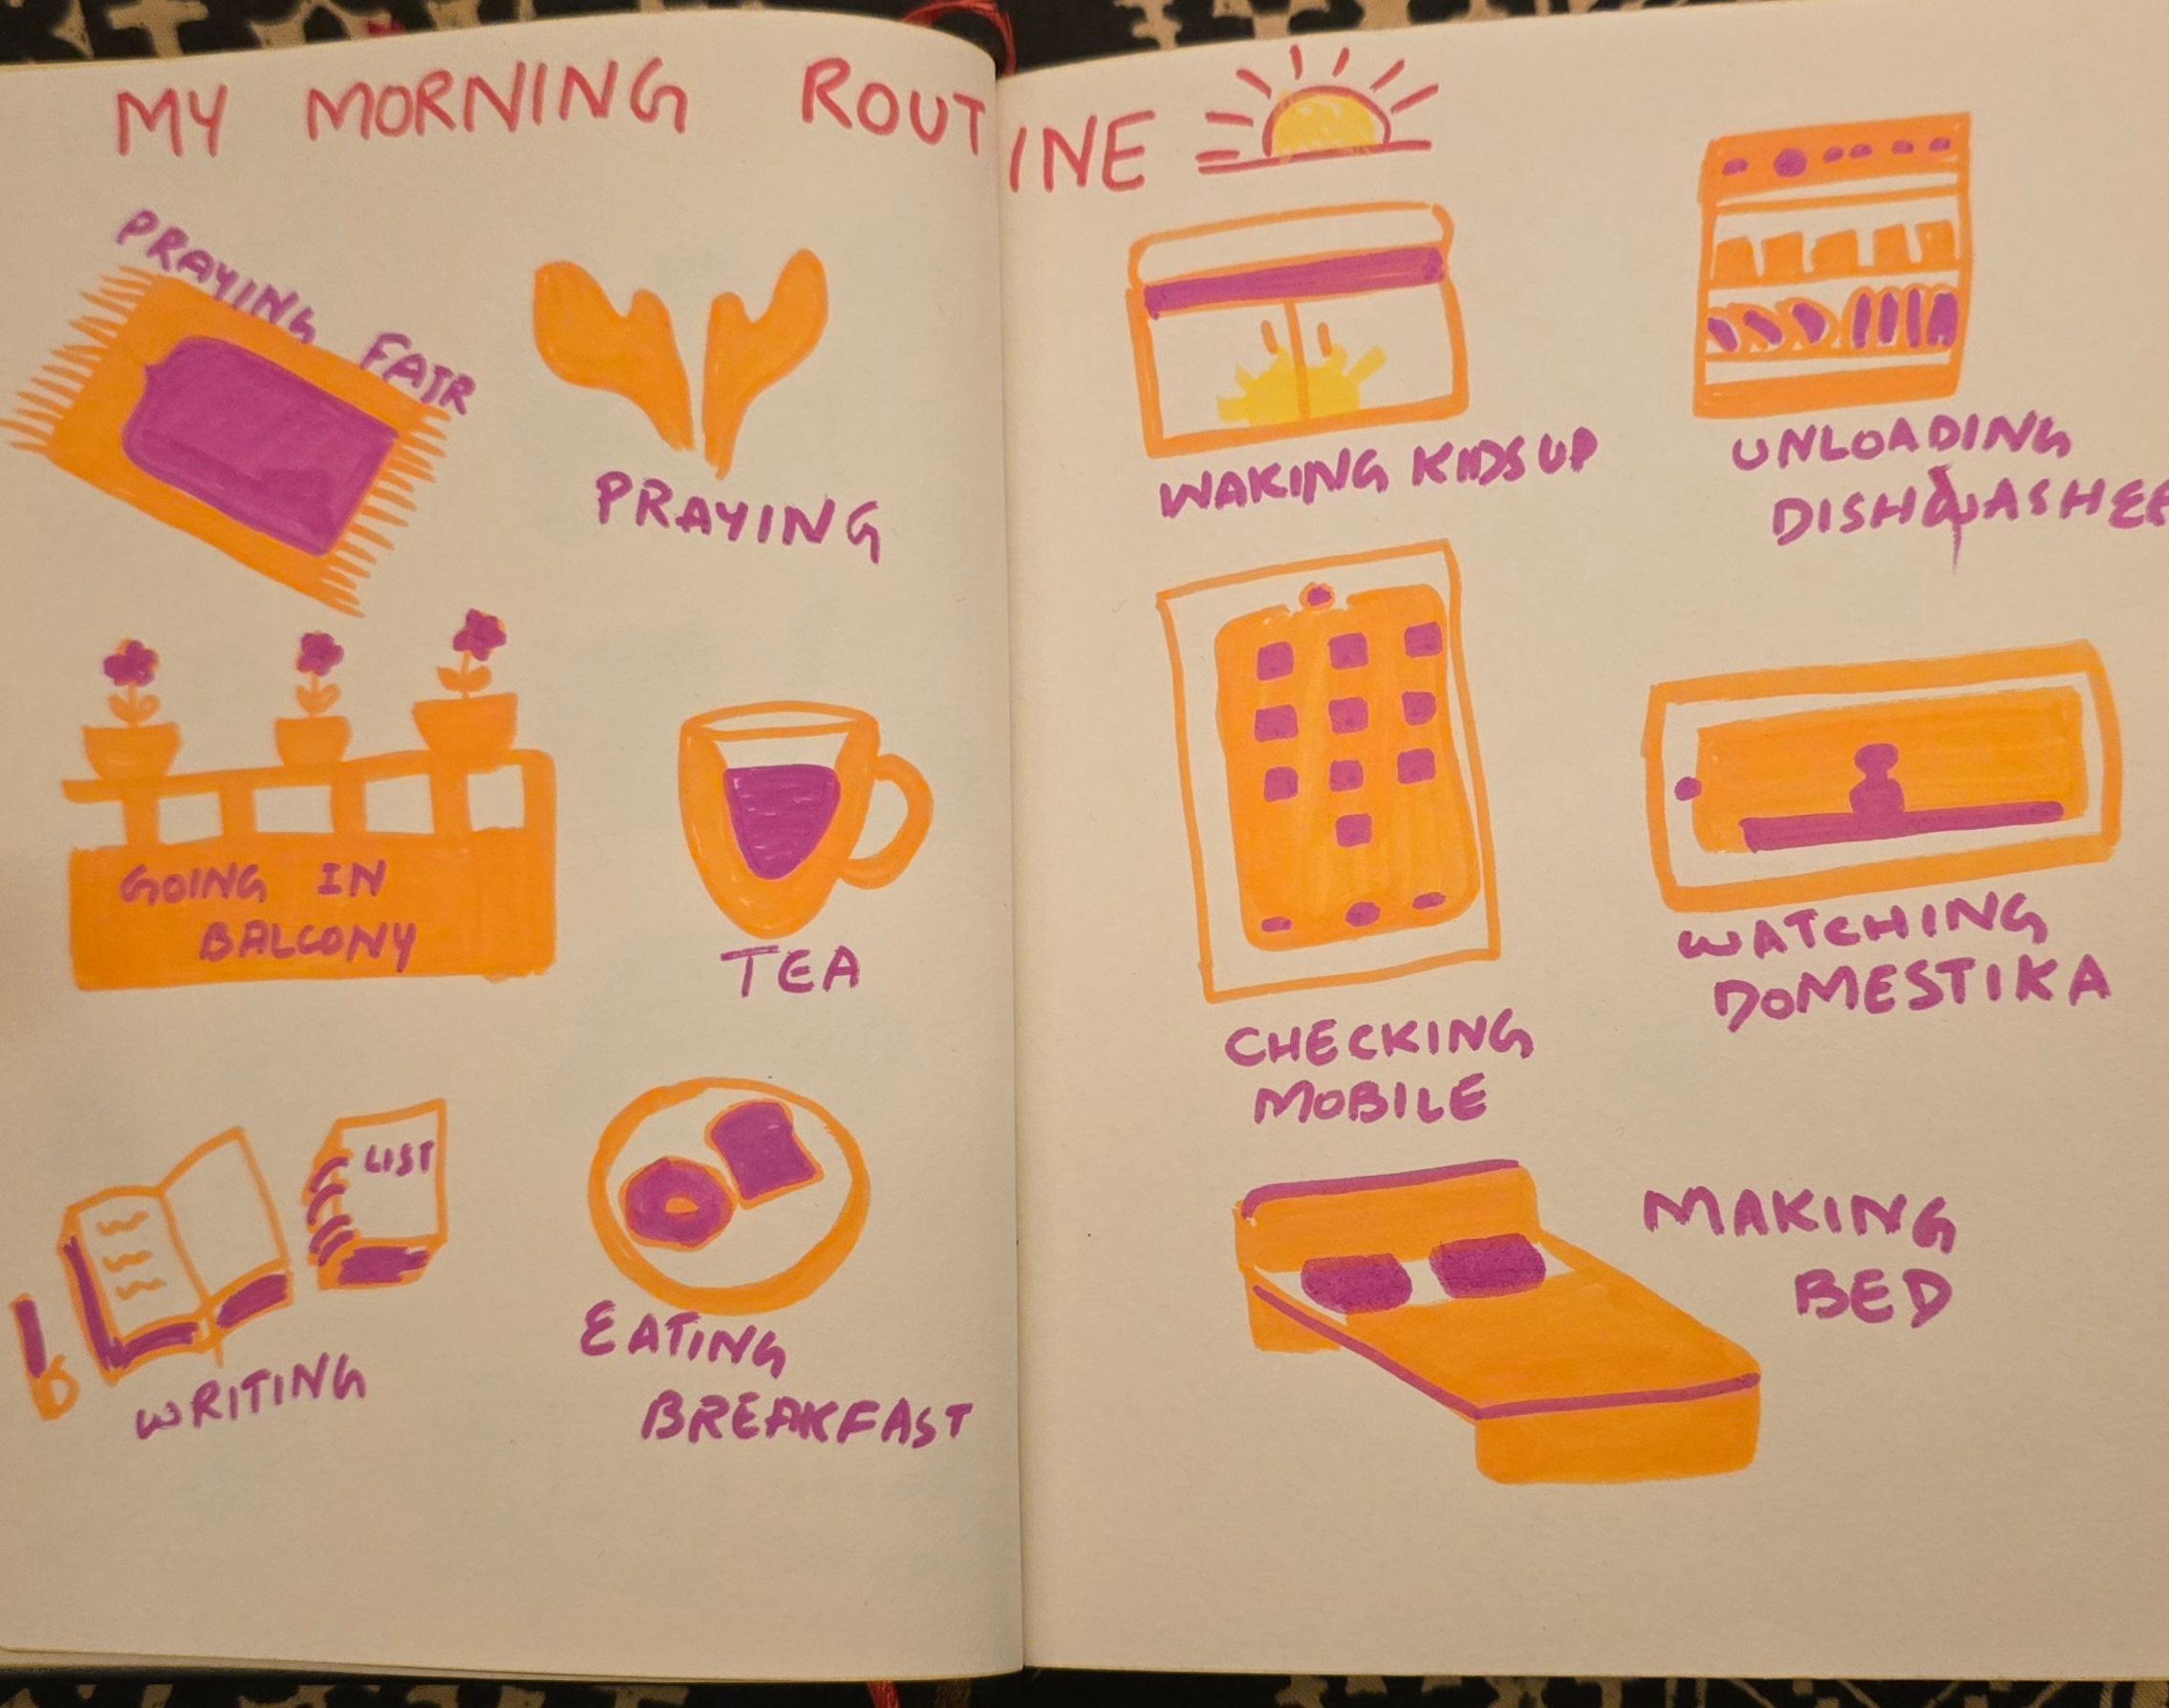 MY MORNING ROUTINE
PRAYING FAJR
PRAYING
GOING IN
BALCONY
TEA
LIST
WRITING
EATING
BREAKFAST
WAKING KIDS UP
UNLOADING
DISHWASHER
CHECKING
MOBILE
WATCHING
DOMESTIKA
MAKING
BED